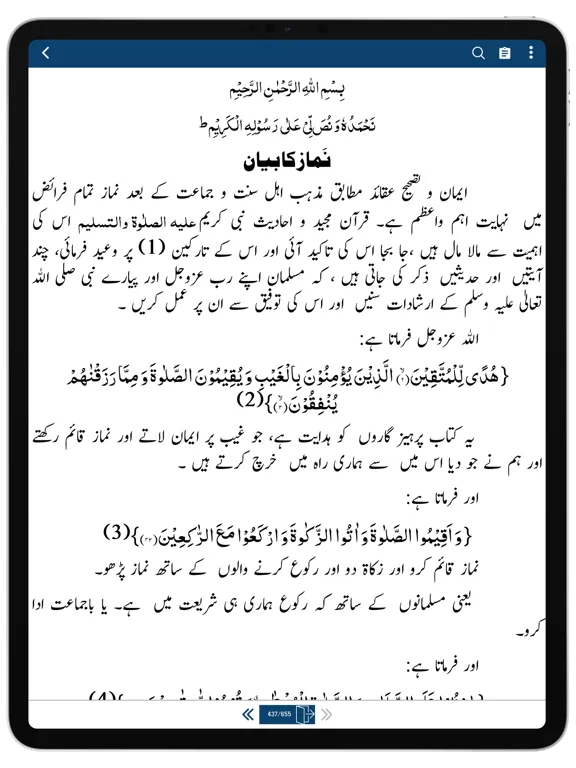 بِسْمِ اللهِ الرَّحْمٰنِ الرَّحِیْمِ
نَحْمَدُہٗ وَنُصَلِّیْ عَلٰی رَسُوْلِهِ الْکَرِیْمِ ط
نَماز کا بیان
ایمان و تصحیح عقائد مطابق مذہب اہل سنت و جماعت کے بعد نماز تمام فرائض
میں نہایت اہم واعظم ہے۔ قرآن مجید و احادیث نبی کریم علیه الصلٰوۃ والتسلیم اس کی
اہمیت سے مالا مال ہیں ،جا بجا اس کی تاکید آئی اور اس کے تارکین (1) پر وعید فرمائی، چند
آیتیں اور حدیثیں ذکر کی جاتی ہیں ، کہ مسلمان اپنے رب عزوجل اور پیارے نبی صلی اللہ
تعالیٰ علیہ وسلم کے ارشادات سنیں اور اس کی توفیق سے ان پر عمل کریں ۔
اللہ عزوجل فرماتا ہے:
{هُدًى لِّلْمُتَّقِیْنَۙ(۲) الَّذِیْنَ یُؤْمِنُوْنَ بِالْغَیْبِ وَ یُقِیْمُوْنَ الصَّلٰوةَ وَ مِمَّا رَزَقْنٰهُمْ
یُنْفِقُوْنَۙ(۳)}(2)
یہ کتاب پرہیز گاروں کو ہدایت ہے، جو غیب پر ایمان لاتے اور نماز قائم رکھتے
اور ہم نے جو دیا اس میں سے ہماری راہ میں خرچ کرتے ہیں ۔
اور فرماتا ہے:
{وَ اَقِیْمُوا الصَّلٰوةَ وَ اٰتُوا الزَّكٰوةَ وَ ارْكَعُوْا مَعَ الرّٰكِعِیْنَ(۴۳)}(3)
نماز قائم کرو اور زکاۃ دو اور رکوع کرنے والوں کے ساتھ نماز پڑھو۔
یعنی مسلمانوں کے ساتھ کہ رکوع ہماری ہی شریعت میں ہے۔ یا باجماعت ادا
کرو۔
اور فرماتا ہے:
437/655